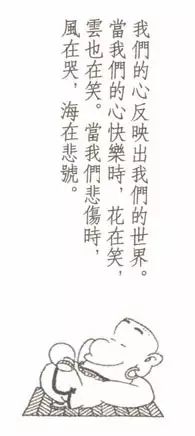 我們的心反映出我們的世界。
當我們的心快樂時，花在笑，
雲也在笑。當我們悲傷時，
風在哭，海在悲號。